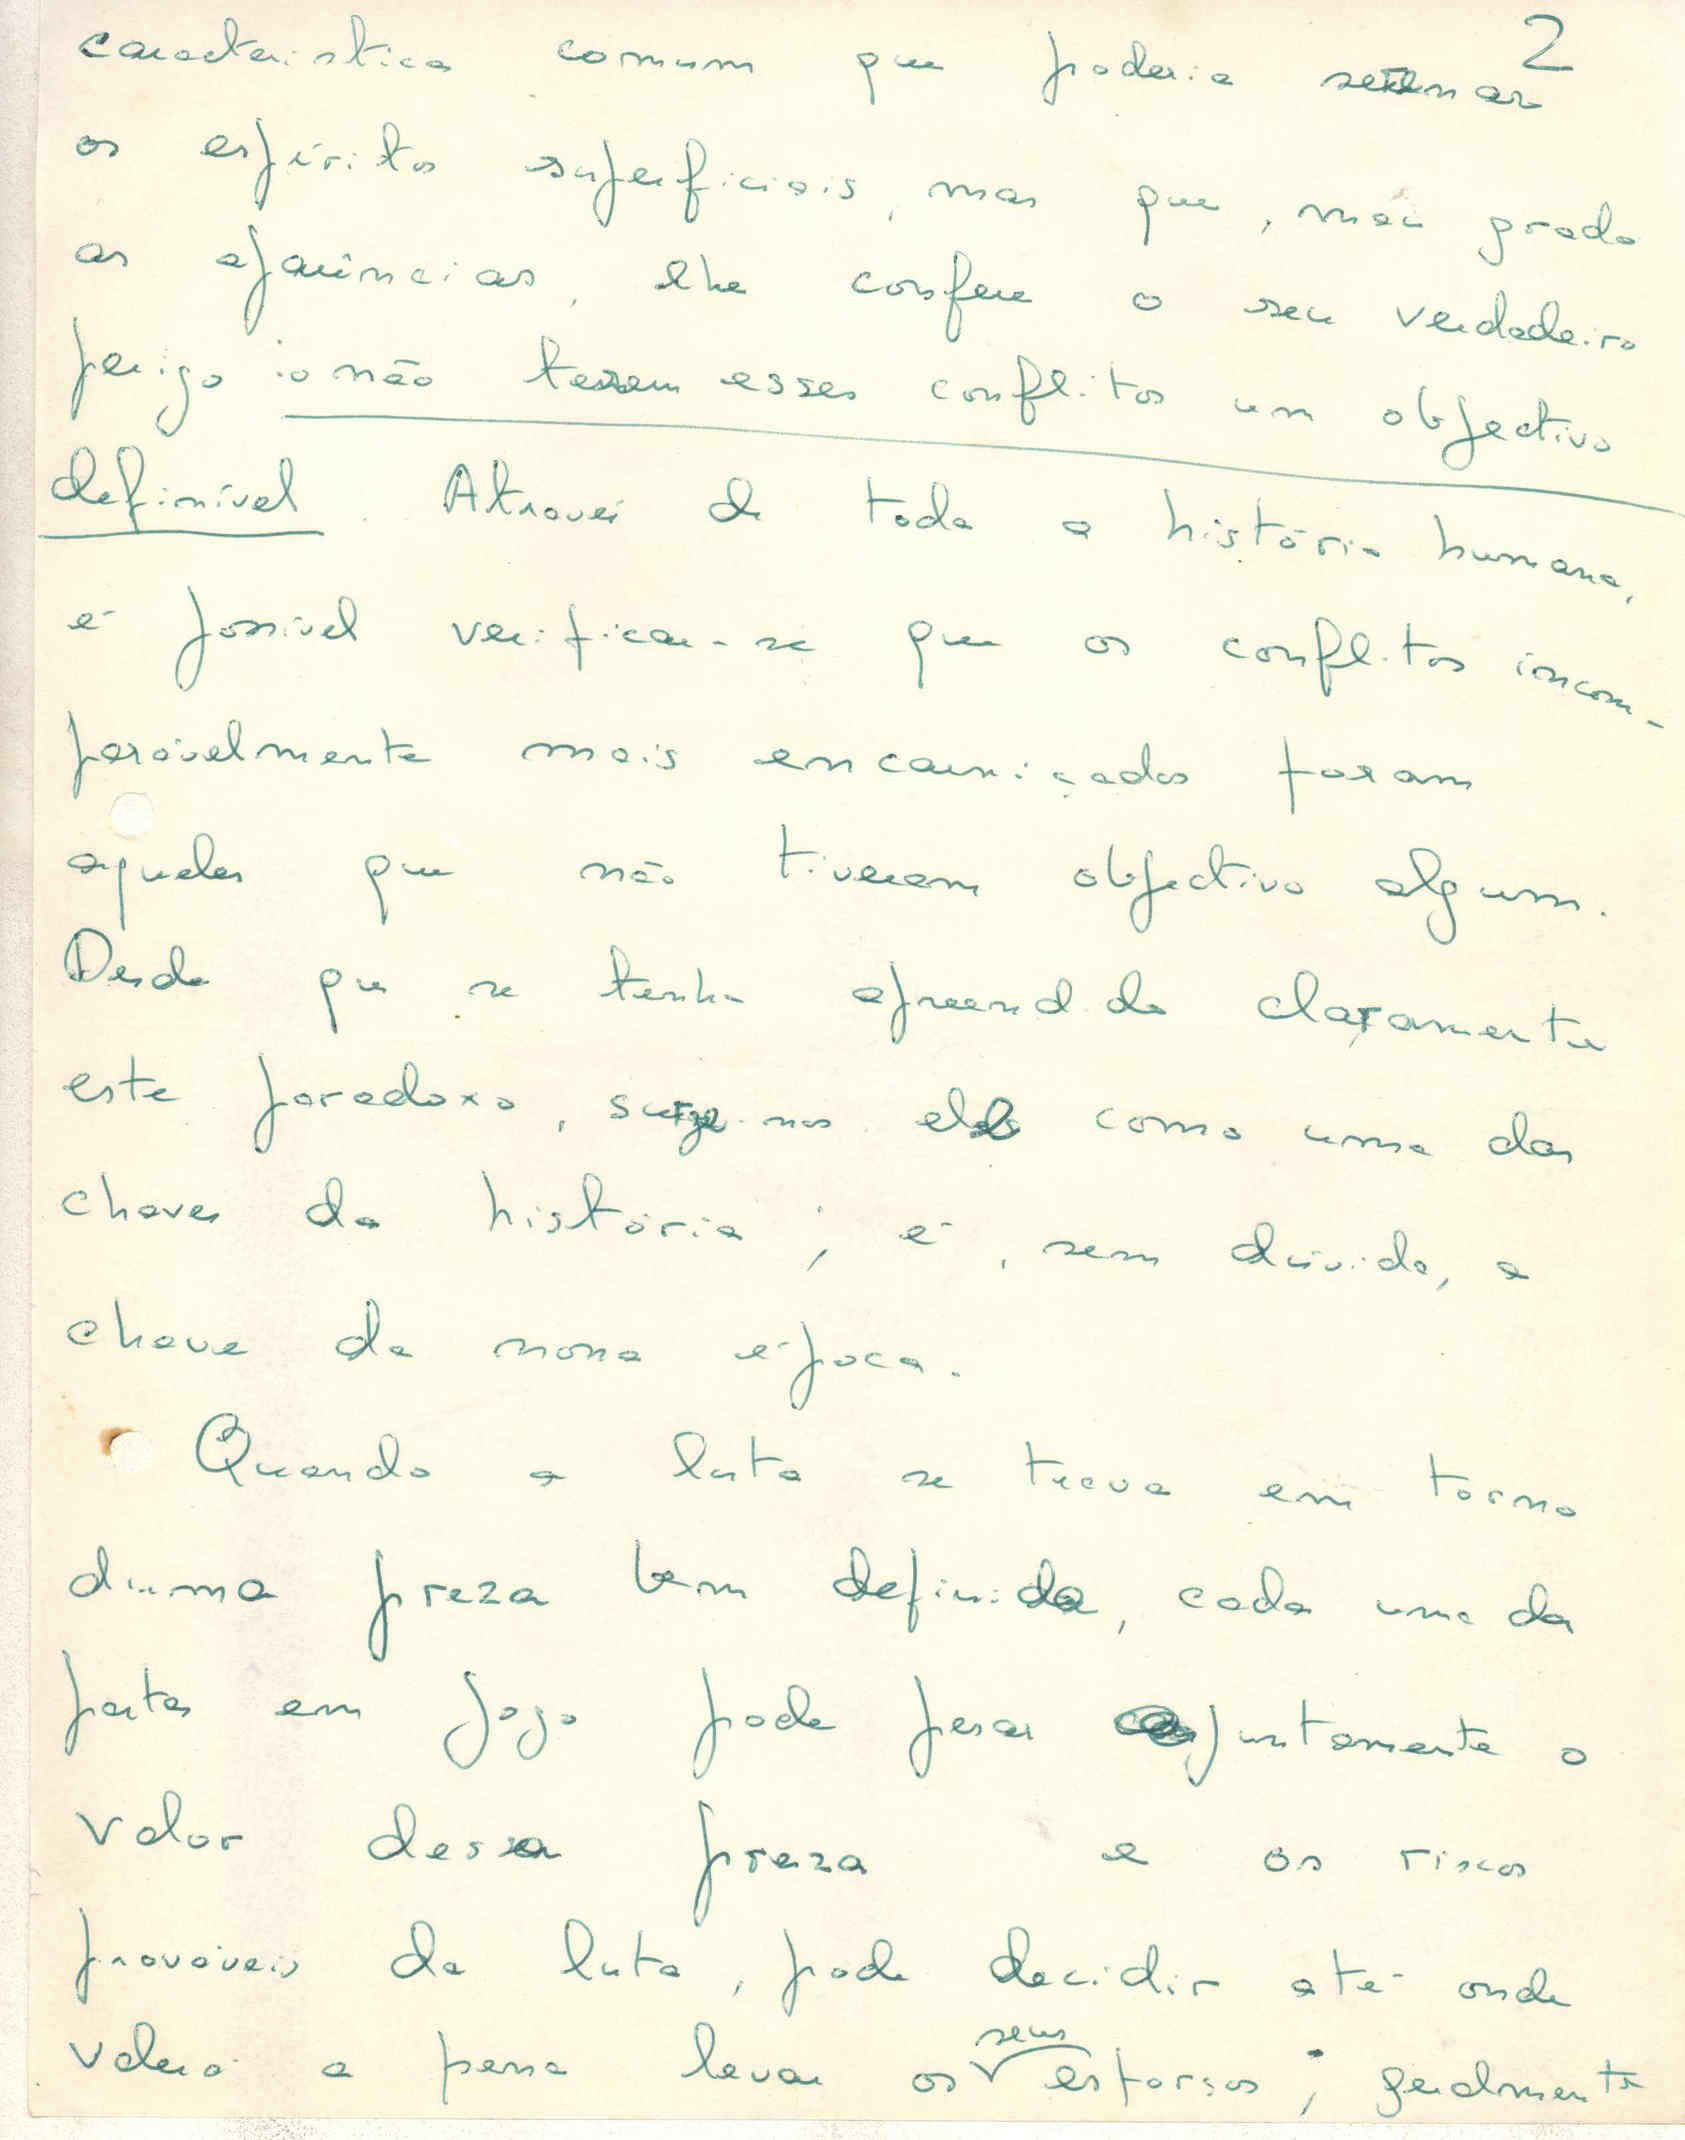 2
característica comum que poderia serenar
os espíritos superficiais, mas que, mau grado
as aparências, lhe confere o seu verdadeiro
perigo: o não terem esses conflitos um objectivo
definível. Através de toda a história humana,
é possível verificar-se que os conflitos incom-
paràvelmente mais encarniçados foram
aqueles que não tiveram objectivo algum.
Desde que se tenha apreendido claramente
este paradoxo, surge-nos ele como uma das
chaves da história; é, sem dúvida, a
chave da nossa época.
Quando a luta se trava em torno
duma preza bem definida, cada uma das
partes em jogo pode pesar justamente o
valor dessa preza e os riscos
prováveis da luta, pode decidir até onde
valerá a pena levar os seus esforços; geralmente